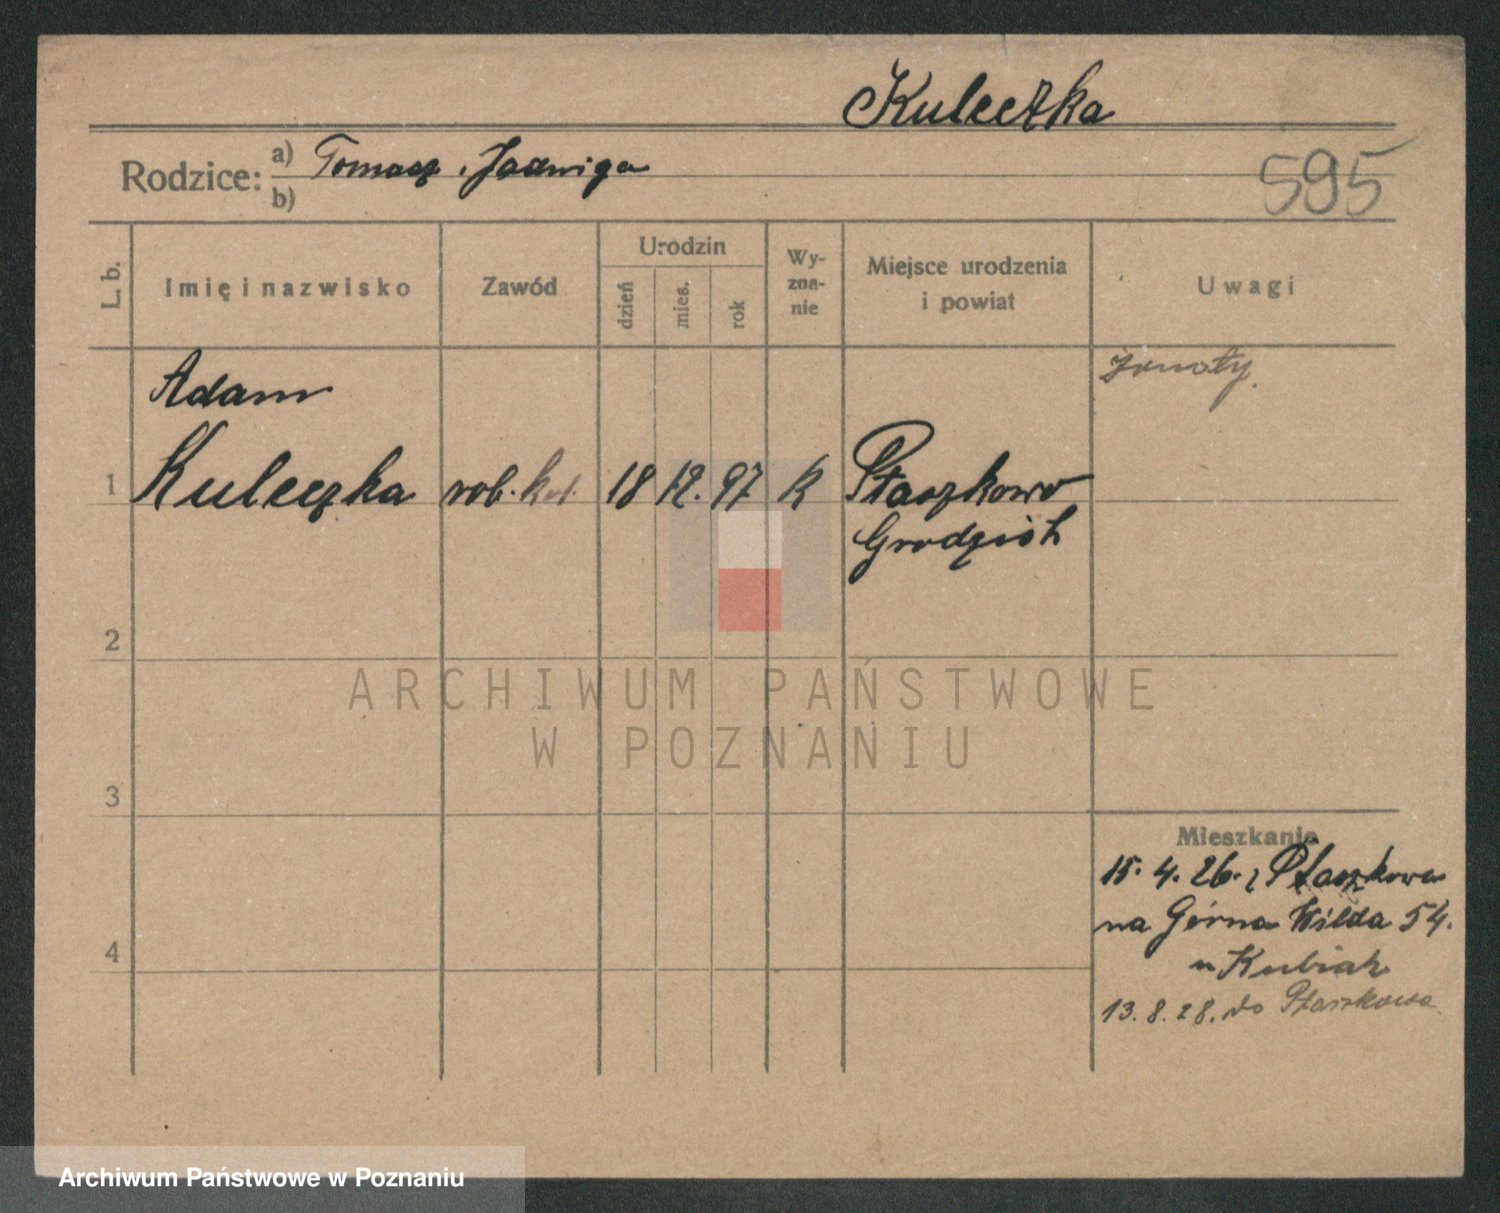 Kuleczka
Rodzice: a) Tomasz, Jadwiga
b)
595
L. b.
Imię i nazwisko
Zawód
Urodzin
dzień
mies.
rok
Wy-
zna-
nie
Miejsce urodzenia
i powiat
Uwagi
żonaty.
Adam
1 Kuleczka rob. kol. 18 12. 97 k Ptaszkowo
Grodzisk
2
3
4
Mieszkanie
15. 4. 26. z Ptaszkowa
na Górna Wilda 54.
u Kubiak
13. 8. 28. do Ptaszkowa
ARCHIWUM PAŃSTWOWE
W POZNANIU
Archiwum Państwowe w Poznaniu